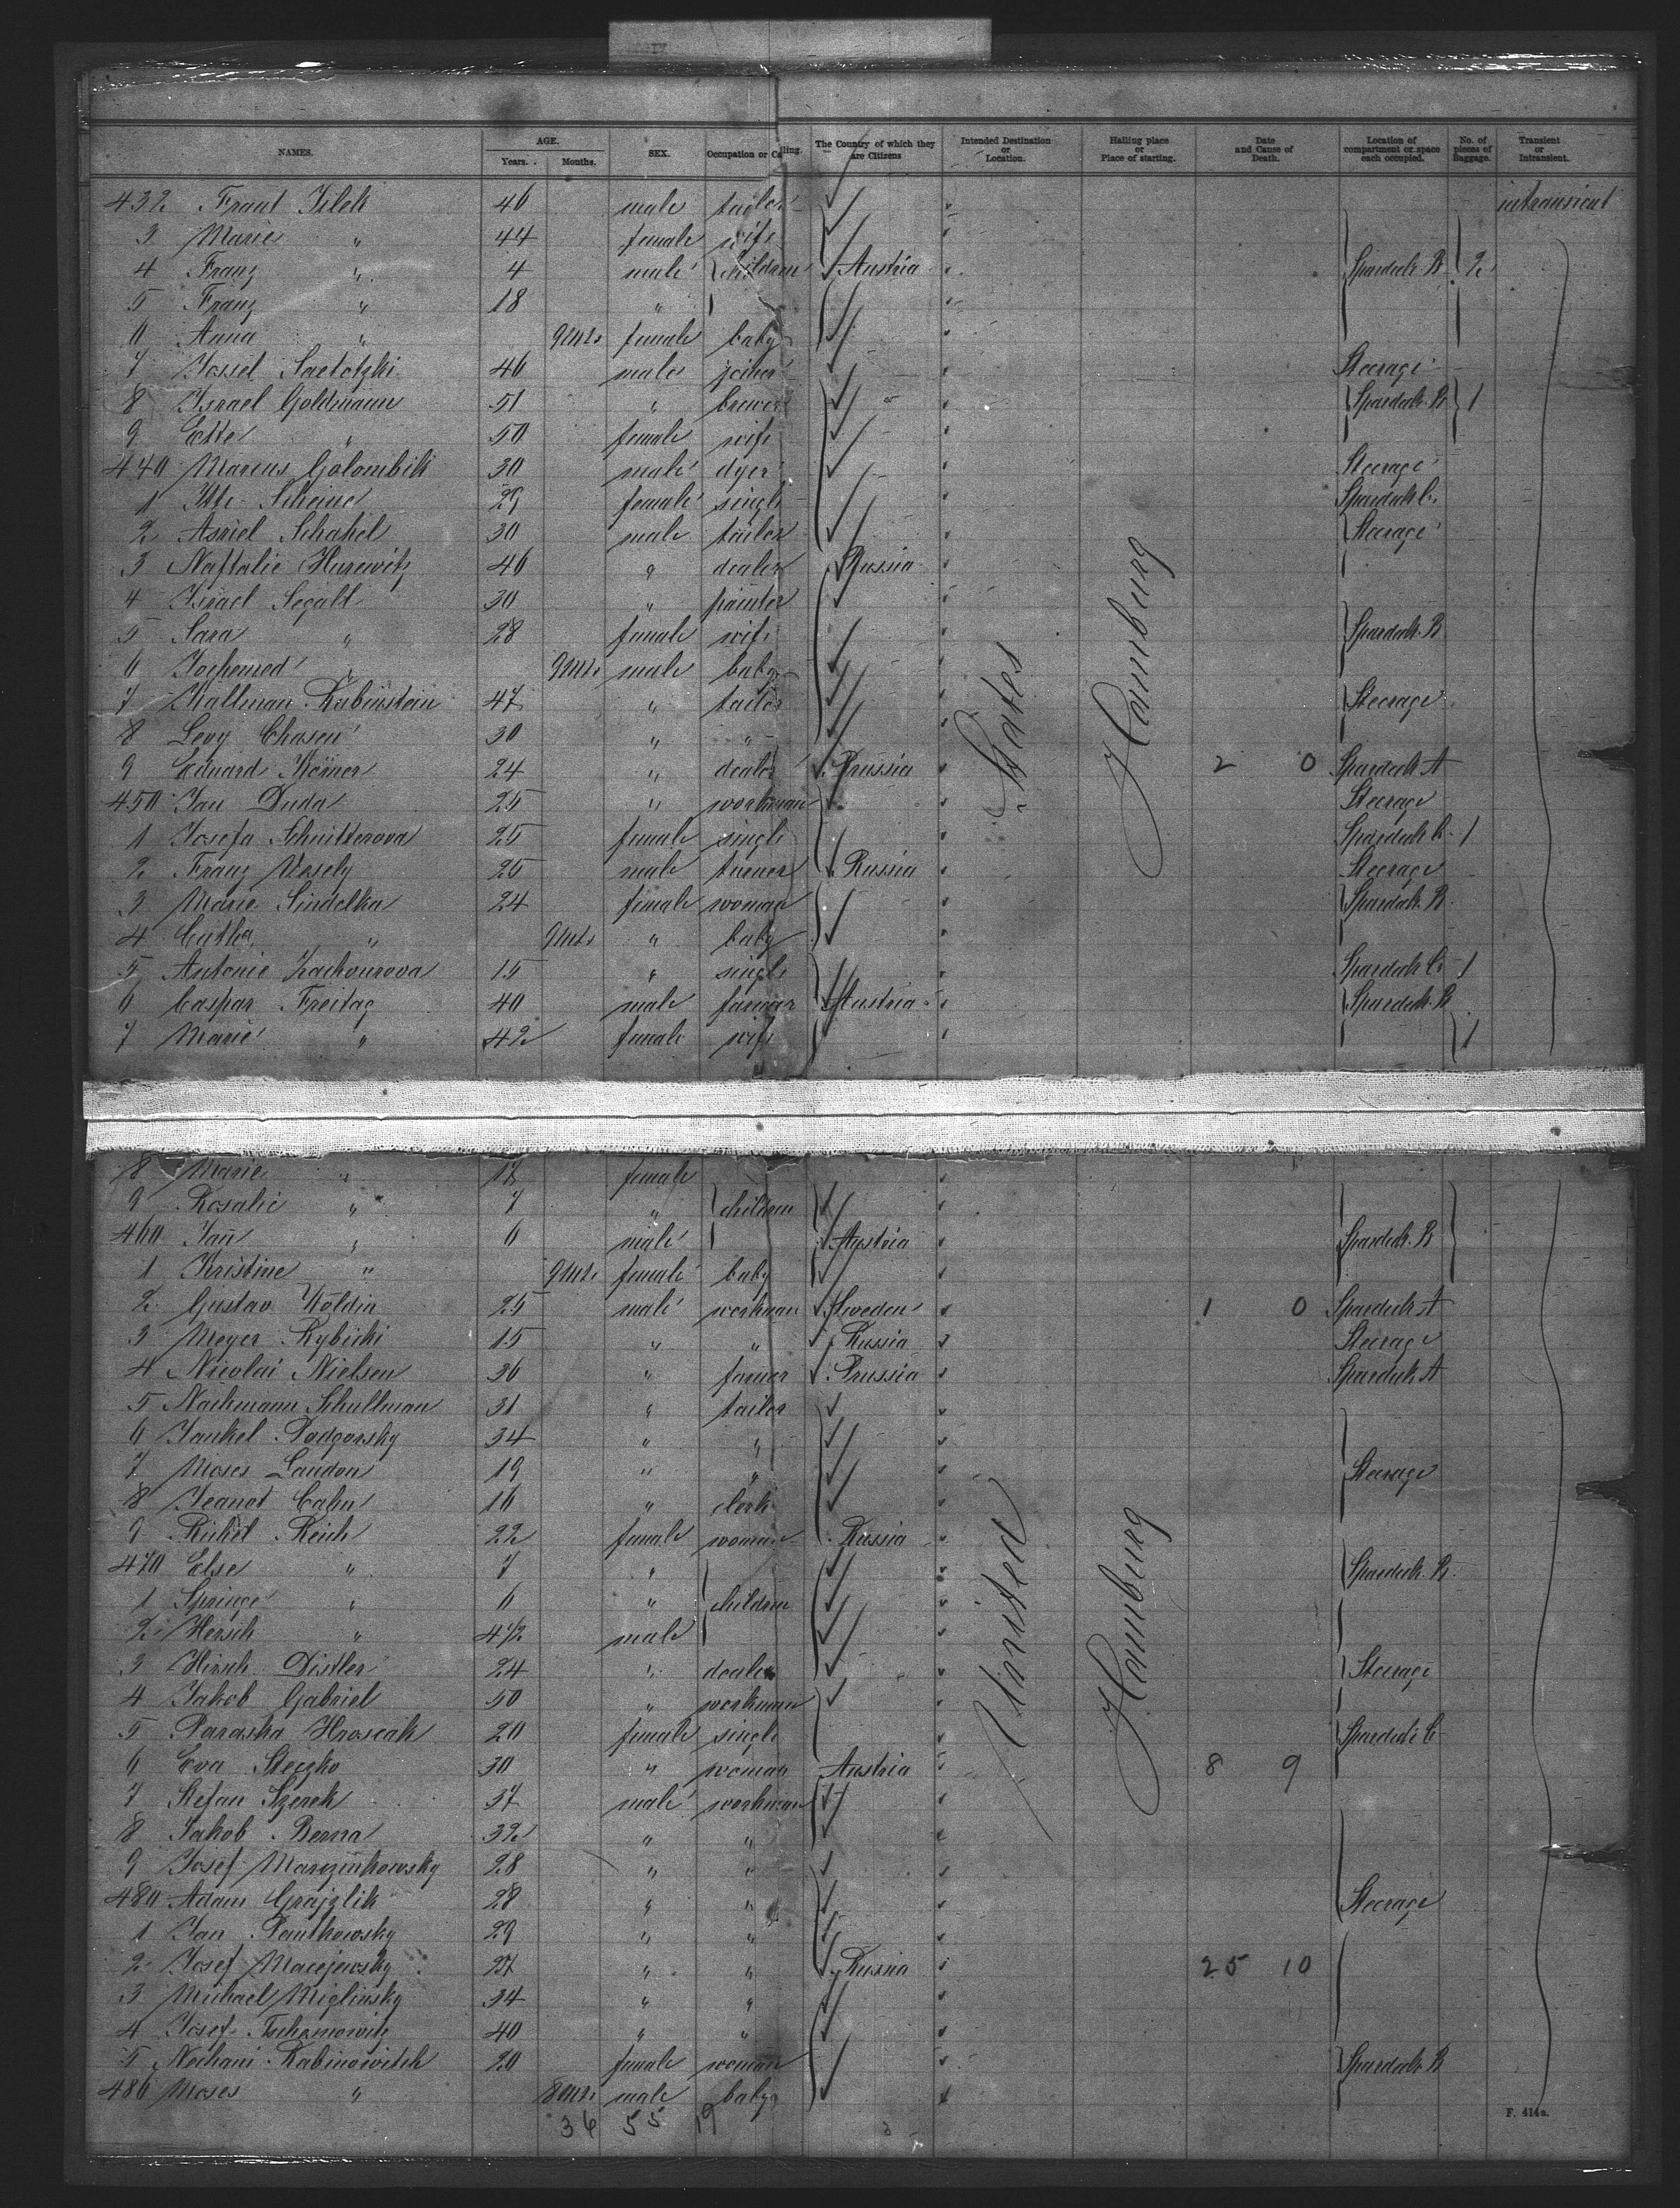 NAMES. AGE. Years. Months. SEX. Occupation or Calling. The Country of which they are Citizens Intended Destination or Location. Hailing place or Place of starting. Date and Cause of Death. Location of compartment or space each occupied. No. of pieces of Baggage. Transient or Intransient.
432 46 male intransient
3 Marie " 44 female wife
4 Franz " 4 male children Austria Spardeck B 2
5 Franz " 18 "
6 Anna " 9 Mts female baby
7 Jossel 46 male joiner Steerage
8 Israel Goldmann 51 " brewer Spardeck B 1
9 Ette " 50 female wife
440 Marcus Golombik 30 male dyer Steerage
1 Scheine 29 female single Spardeck C
2 Asriel Schakel 30 male tailor Steerage
3 Naftalie Hurewitz 46 " dealer Russia
4 Israel Segall 30 " painter
5 Sara " 28 female wife Spardeck B
6 Jochewed " 9 Mts male baby
7 Kallman Rubinstein 47 " tailor Steerage
8 Levy Chasen 30 " "
9 Eduard Körner 24 " dealer Prussia 2 0 Spardeck A
450 Jan Duda 25 " workman Steerage
1 Josefa Schnitterova 25 female single Spardeck C 1
2 Franz Vesely 25 male turner Russia Steerage
3 Marie Sindelka 24 female woman Spardeck B
4 Catha " 9 Mts " baby
5 Antonie Zachourova 15 " single Spardeck C 1
6 Caspar Freitag 40 male farmer Austria Spardeck B
7 Marie " 42 female wife 1
States
Hamburg
8 Marie " female
9 Rosalie " 7 " children
460 Jan " 6 male Austria Spardeck B
1 Kristine " 9 Mts female baby
2 Gustav Woldin 25 male workman Sweden 1 0 Spardeck A
3 Meyer Rybicki 15 " " Russia Steerage
4 Nicolai Nielsen 36 " farmer Prussia Spardeck A
5 Nachmann Schullman 31 " tailor
6 Jankel Podgorsky 34 " "
7 Moses Landon 19 " " Steerage
8 Jeanot Cahn 16 " clerk
9 Rickel Reich 22 female woman Russia
470 Else " 7 " Spardeck B
1 Springe " 6 " children
2 Hersch " 4 1/2 male
3 Hirsch Distler 24 " dealer Steerage
4 Jakob Gabriel 50 " workman
5 Paraska Hrosciak 20 female single Spardeck C
6 Eva Steczko 30 " woman Austria 8 9
7 Stefan Szerek 37 male workman
8 Jakob Berna 32 " "
9 Josef Marzinkowsky 28 " "
480 Adam Grajzlik 28 " " Steerage
1 Jan Pautkowsky 29 " "
2 Josef Maciejewsky 27 " " Russia 25 10
3 Michael Miglinsky 34 " "
4 Josef 40 " "
5 Nochani Rabinowitsch 20 female woman Spardeck B
486 Moses " 8 Mts male baby
United
Hamburg
36 55 19
F. 414a.